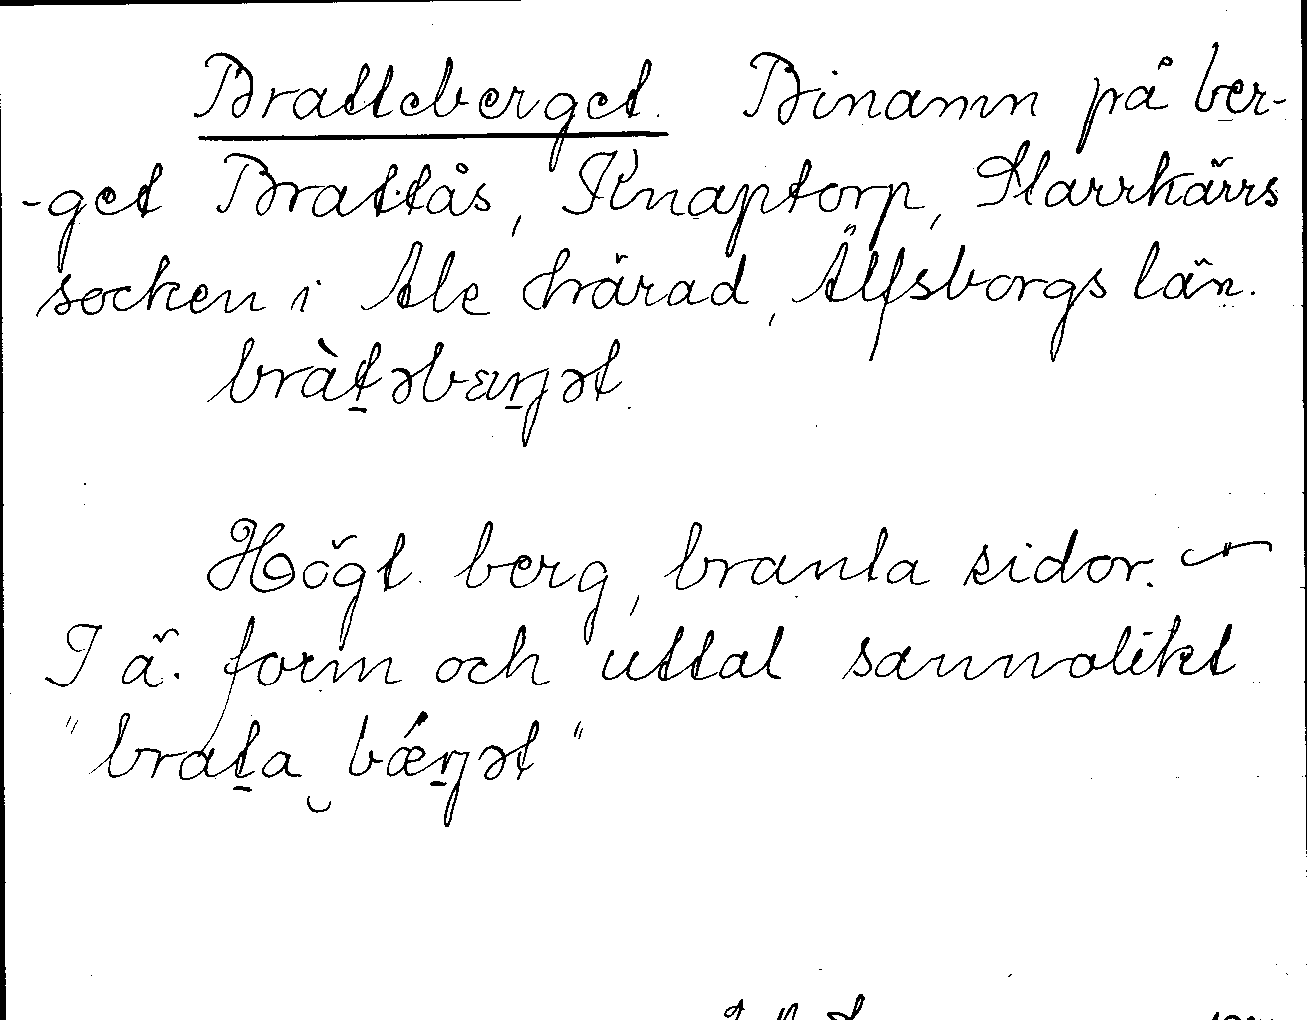 Bratteberget. Binamn på ber-
-get Brattås, Knaptorp, Starrkärrs
socken i Ale härad, Älfsborgs län.
bràt̠əbæŋət.
Högt berg, branta sidor. –
I ä. form och uttal sannolikt
"brat̠a ̮bǽŋət"